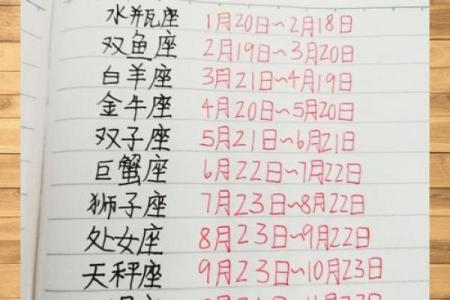 水瓶座 1月20日~2月18日
双鱼座 2月19日~3月20日
白羊座 3月21日~4月19日
金牛座 4月20日~5月20日
双子座 5月21日~6月21日
巨蟹座 6月22日~7月22日
狮子座 7月23日~8月22日
处女座 8月23日~9月22日
天秤座 9月23日~10月23日